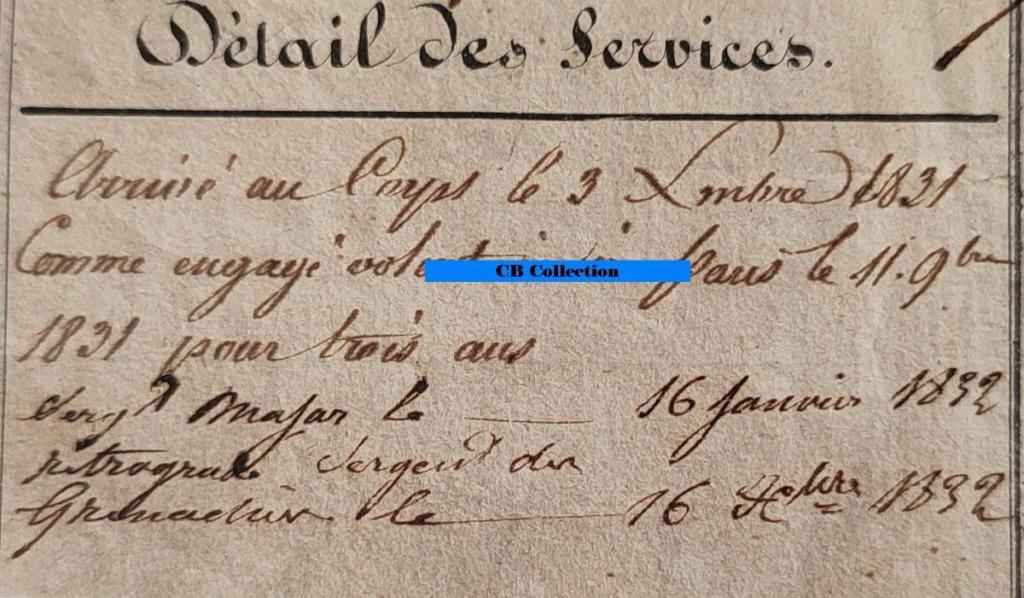 Détail des Services.
Arrivé au Corps le 3 Xmbre 1831
Comme engagé volont à Paris le 11. 9bre
CB Collection
1831 pour trois ans
Sergt Major le 16 Janvier 1832
rétrograde Sergent des
Grenadiers le 16 Xbre 1832